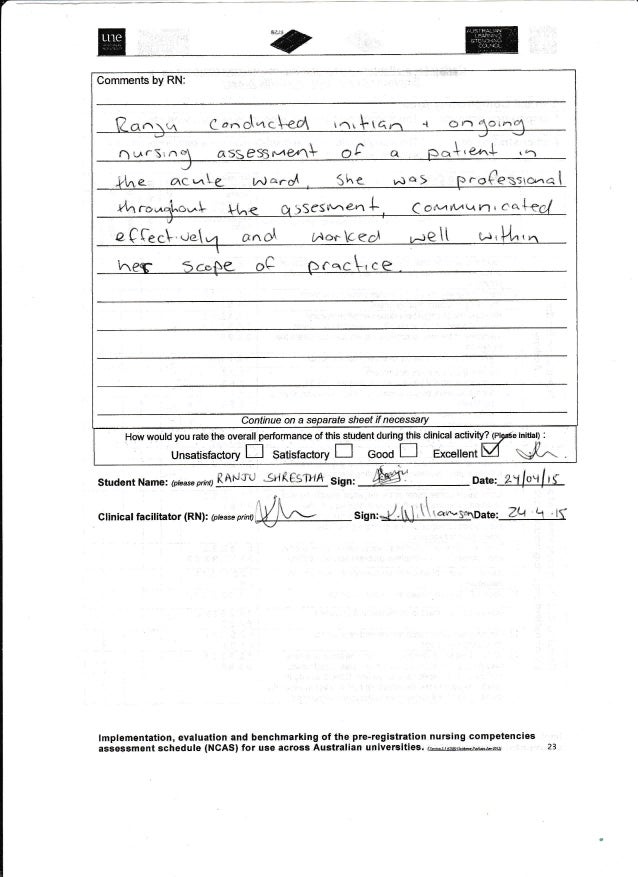 une
AUSTRALIAN
LEARNING
& TEACHING
COUNCIL
Comments by RN:
Ranju conducted initian + ongoing
nursing assessment of a patient in
the acute ward, She was professional
throughout the assesment, communicated
effectively and worked well within
her scope of practice.
Continue on a separate sheet if necessary
How would you rate the overall performance of this student during this clinical activity? (Please initial) :
Unsatisfactory Satisfactory Good Excellent
Student Name: (please print) RANJU SHRESTHA Sign: Ranju Date: 24/04/15
Clinical facilitator (RN): (please print) Sign: K.Williamson Date: 24.4.15
Implementation, evaluation and benchmarking of the pre-registration nursing competencies
assessment schedule (NCAS) for use across Australian universities. 23